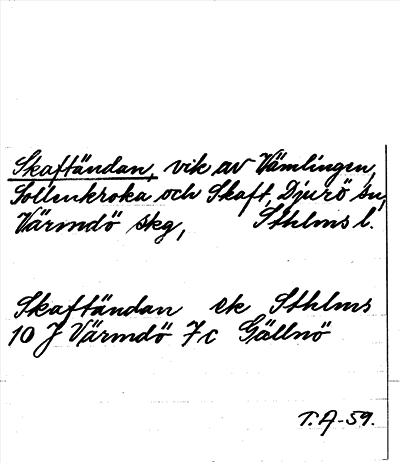 Skaftändan, vik av Vämlingen,
Sollenkroka och Skaft, Djurö sn,
Värmdö skg, Sthlms l.
Skaftändan ek Sthlms
10 J Värmdö 7c Gällnö
T.A-59.